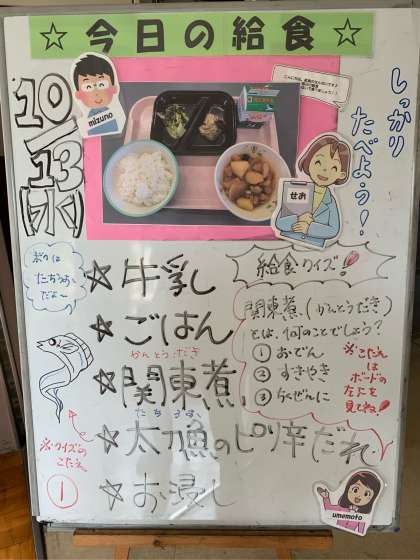 ☆今日の給食☆
10/13(水)
mizuno
しっかり
たべよう!
せお
ボクは
たちうお
だよ〜
☆牛乳
☆ごはん
かんとうだき
☆関東煮
たちうお
☆太刀魚のピリ辛だれ
☆お浸し
給食クイズ!
関東煮(かんとうだき)
とは、何のことでしょう?
①おでん
②すきやき
③ちくぜんに
※こたえ
は
ボードの
左下を
見てね
※クイズの
こたえ
①
umemoto